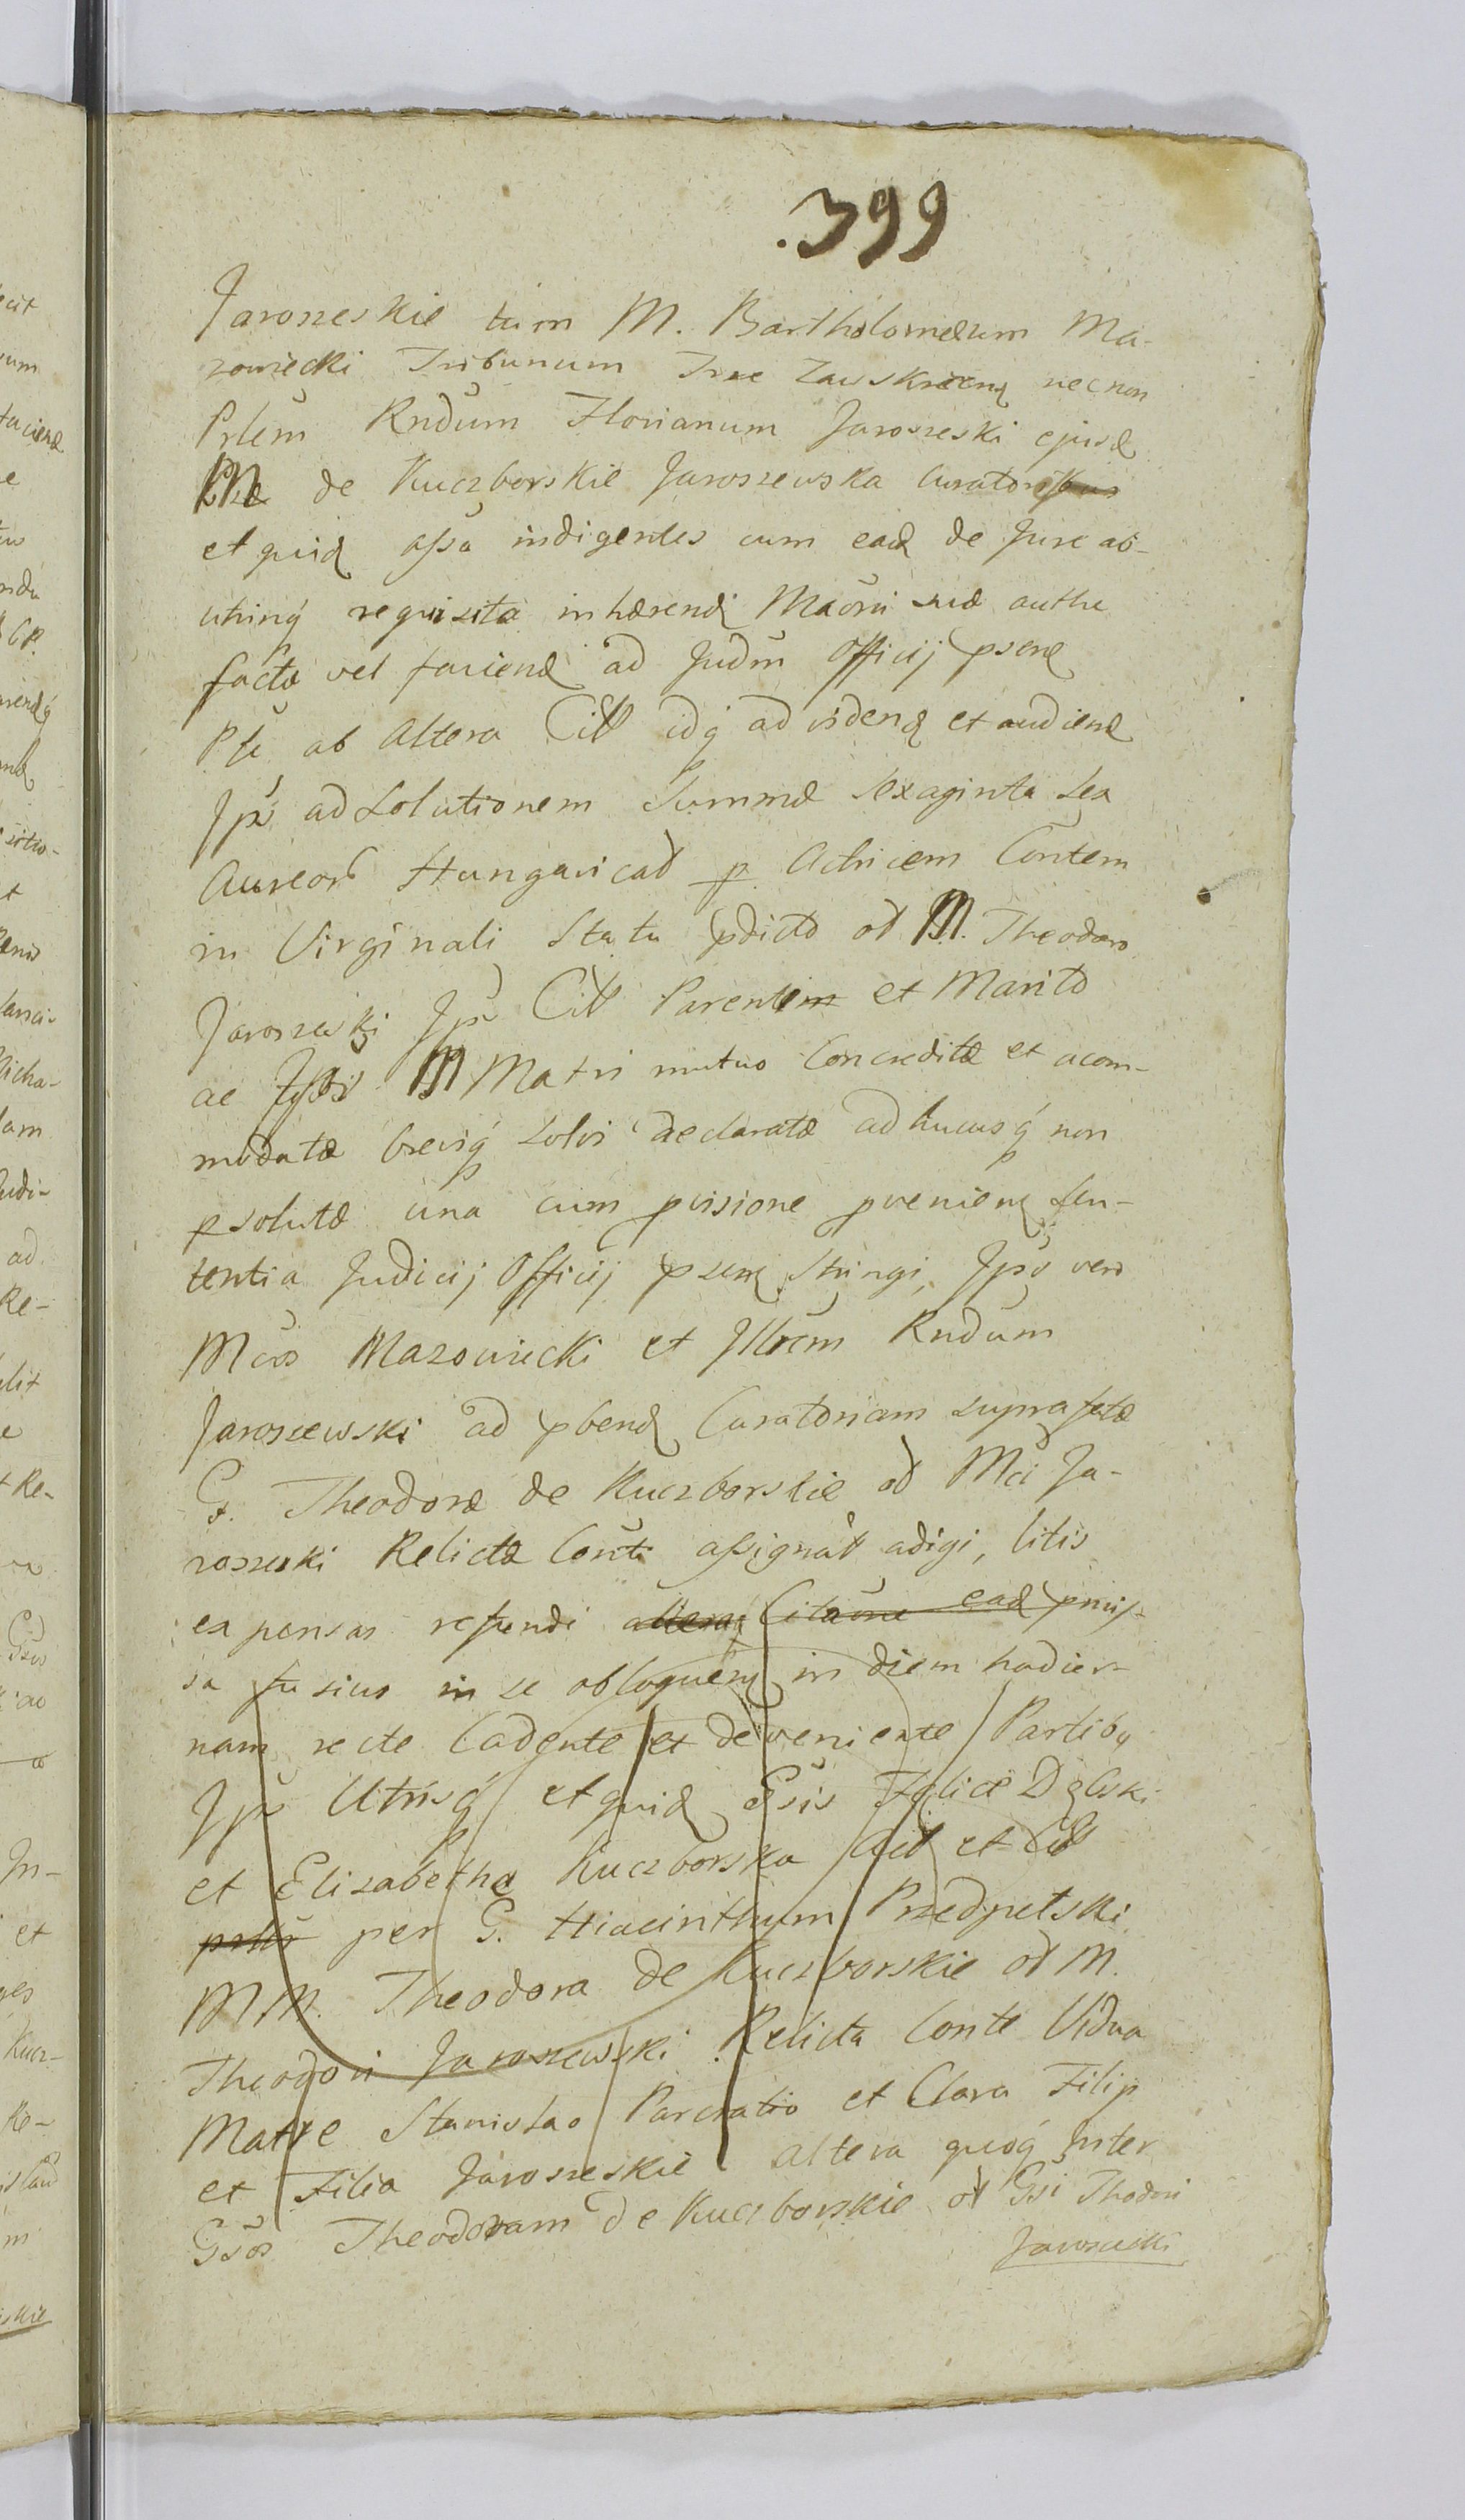 .399
Jaroszeskie tum M. Bartholomæum Ma-
zowiecki Tribunum Træ Zawskrzen necnon
Prlem Rndum Florianum Jaroszeski ejusd
M de Kuczborskie Jaroszewska Curatoribus
et quid assa indigentes cum ead de Jure ab-
utrinq requisita inhærend Maōrū suæ authe
factæ vel faciend ad Judm Officij psene
Pte ab altera Citt idq ad vidend et audiend
Jps ad Solutionem Summæ Sexaginta Sex
Aureor Hungarical p Actricem Contem
in Virginali Statu pdicto ol M. Theodoro
Jaroszewski Jps Citt Parentem et Marito
ac M Matri mutuo Concreditæ et acom-
modatæ brevíq Solvi declaratæ adhucusq non
psolutæ una cum pvisione pvenien Sen-
tentia Judicij Officij psen Stringi, Jpos vero
Mcos Mazowiecki et Jllrem Rndum
Jaroszewski ad pbend Curatoriam suprafatæ
G. Theodoræ de Kuczborskie ol Mci Ja-
roszeski Relictæ Conti assignat adigi, litis
expensas refundi altera Citatōne ead pmis-
sa fusius in se obloquen in diem hodier-
nam recte Cadente et deveniente Partiby
Jps Utrisq et quid Gsis Felice Dębski
et Elizabetha Kuczborska Act et Citt
per G. Hiacinthum Przedpełski
MM. Theodora de Kuczborskie ol M.
Theodori Jaroszewski Relicta Conte Vidua
Matre Stanislao Pancratio et Clara Filip
et Filia Jaroszeskie altera quoq Inter
Gsos Theodoram de Kuczborskie ol Gsi Thodori
Jaroszeski